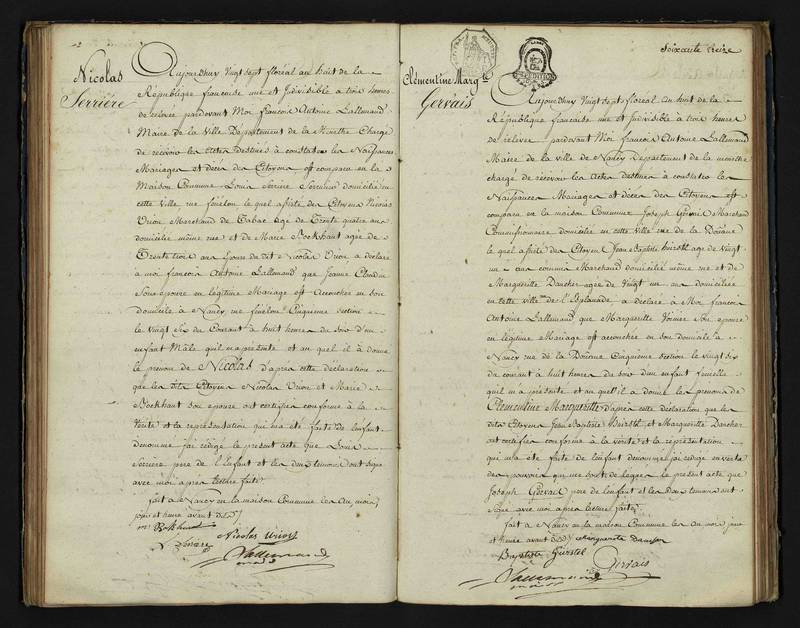 Nicolas
Serrière
Aujourdhuy vingt sept floréal an huit de la
République francoise une et Indivisible à trois heures
de relevée pardevant Moi francois Antoine Lallemand
Maire de la Ville Departement de la Meurthe Chargé
de recevoir les Actes Destinés à constater les Naissances
Mariages et décès des Citoyens est comparu en la
Maison Commune Louis Serriere domicilié en
cette ville rue fénélon le quel assisté des Citoyens Nicolas
Urion Marchand de Tabac agé de Trente quatre ans
domicilié même rue et de Marie Bockhant agée de
Trente trois ans épouse du dit Nicolas Urion a déclaré
à moi francois Antoine Lallemand que Jeanne Claudin
Son epouse en légitime Mariage est Accouchée en son
domicile à Nancy rue fénélon Cinquieme section
le vingt six du Courant à huit heures du soir d'un
enfant Mâle qu'il m'a présenté et au quel il à donné
le prenom de Nicolas d'après cette déclaration
que les dits Citoyens Nicolas Urion et Marie
Bockhant son epouse ont certifiée conforme à la
Vérité et la représentation qui m'a été faite de l'enfant
denommé j'ai rédigé le présent acte que Louis
Serriere père de l'Enfant et les deux temoins ont signé
avec moi après lecture faite
fait à Nancy en la maison Commune les an mois
jour et heure avant dits
Nicolas Urion
Lallemand
maire
soixante treize
Clémentine Marg.te
Gervais
Aujourdhuy vingt sept floréal an huit de la
République francoise une et Indivisible à trois heures
de relevée pardevant Moi francois Antoine Lallemand
Maire de la ville de Nancy Departement de la meurthe
chargé de recevoir les actes destinés à constater les
Naissances Mariages et décès des Citoyens est
comparu en la maison Commune Joseph Gervais Marchand
Commissionnaire domicilié en cette ville rue de la Douane
le quel assisté des Citoyens Jean Baptiste agé de vingt
un ans commis Marchand domicilié même rue et de
Marguerite Dancher agée de vingt un ans domiciliée
en cette ville de l'Esplanade a déclaré à Moi francois
Antoine Lallemand que Marguerite Voinier Son epouse
en légitime Mariage est accouchée en son domicile à
Nancy rue de la Douane Cinquieme section le vingt six
du courant à huit heures du soir d'un enfant femelle
qu'il m'a présenté et au quel il a donné les prenoms de
Clémentine Marguerite d'après cette déclaration que les
dits Citoyens Jean Baptiste et Marguerite Dancher
ont certifiée conforme à la vérité et la représentation
qui m'a été faite de l'enfant denommé j'ai rédigé en vertu
des pouvoirs qui me sont délégués le présent acte que
Joseph Gervais père de l'enfant et les deux temoins ont
signé avec moi après lecture faite
fait à Nancy en la maison Commune les an mois jour
et heure avant dits Marguerite
Baptiste
Gervais
Lallemand
maire